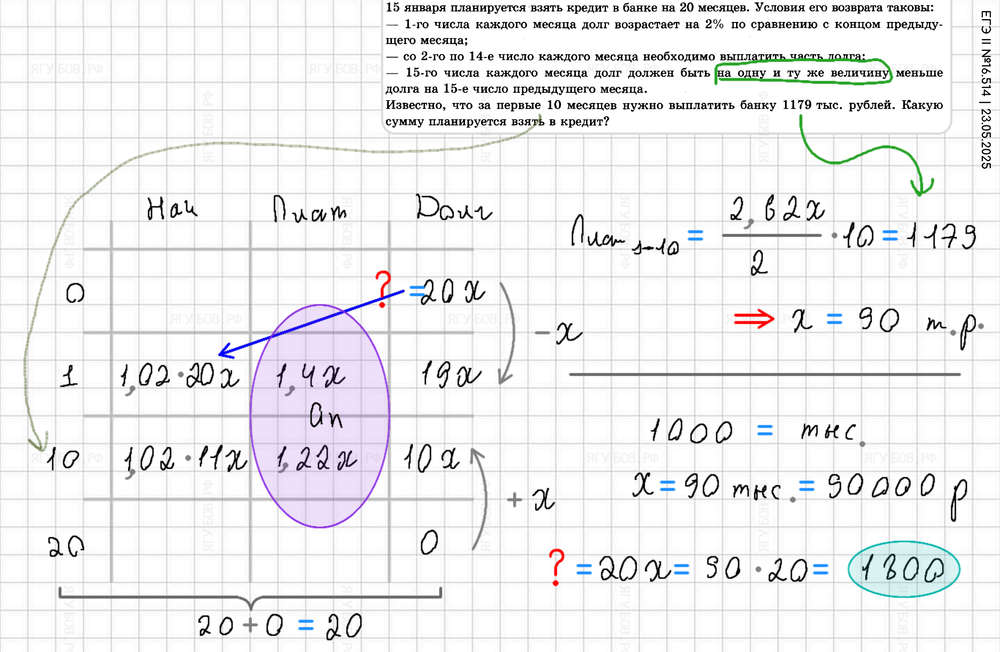 15 января планируется взять кредит в банке на 20 месяцев. Условия его возврата таковы:
— 1-го числа каждого месяца долг возрастает на 2% по сравнению с концом предыду-
щего месяца;
— со 2-го по 14-е число каждого месяца необходимо выплатить часть долга;
— 15-го числа каждого месяца долг должен быть на одну и ту же величину меньше
долга на 15-е число предыдущего месяца.
Известно, что за первые 10 месяцев нужно выплатить банку 1179 тыс. рублей. Какую
сумму планируется взять в кредит?
ЕГЭ II №16.514 | 23.05.2025
Нач Плат Долг
0 ? = 20x
- x
1 1,02·20x 1,4x 19x
an
10 1,02·11x 1,22x 10x
+ x
20 0
20 + 0 = 20
Плат 1-10 = 2,62x / 2 · 10 = 1179
⇒ x = 90 т.р.
1000 = тыс.
x = 90 тыс. = 90000 р
? = 20x = 90 · 20 = 1800
ЯГУБОВ.РФ